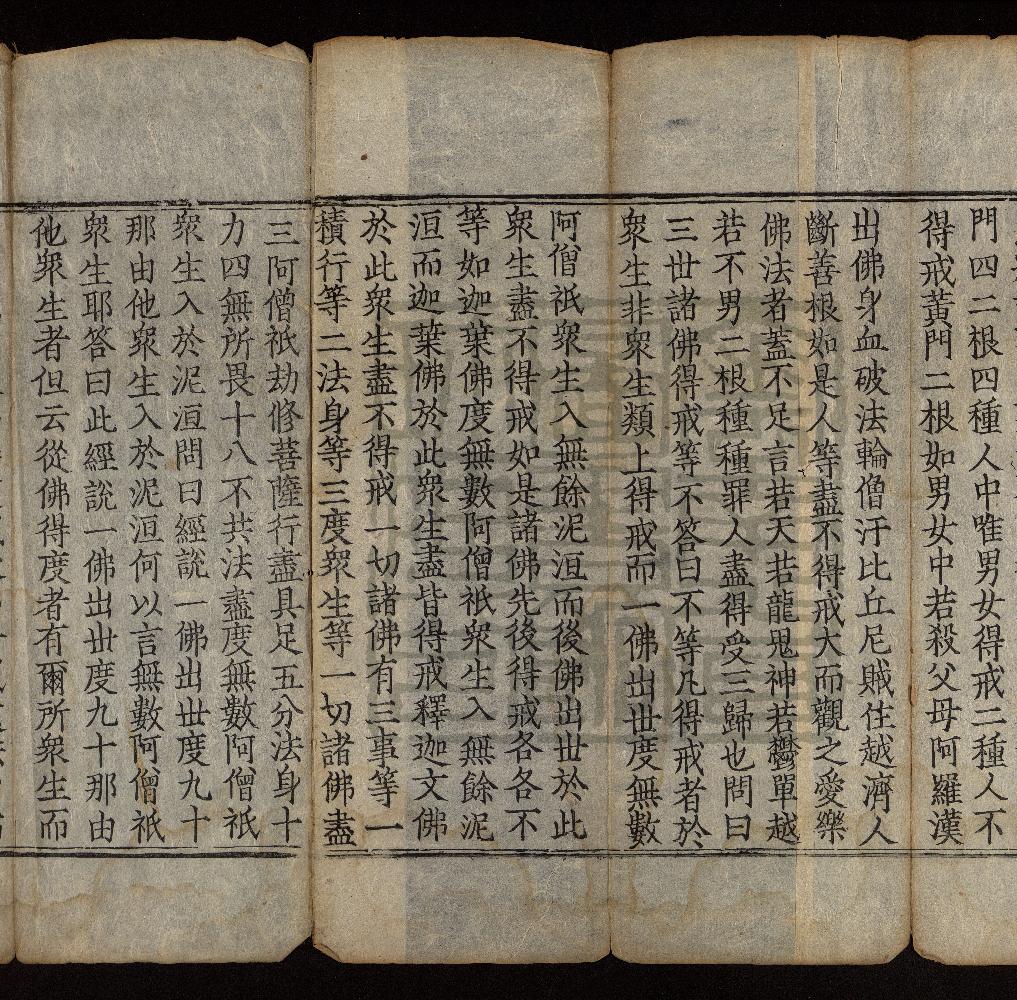 門四二根四種人中唯男女得戒二種人不
得戒黃門二根如男女中若殺父母阿羅漢
出佛身血破法輪僧汙比丘尼賊住越濟人
斷善根如是人等盡不得戒大而觀之愛樂
佛法者蓋不足言若天若龍鬼神若鬱單越
若不男二根種種罪人盡得受三歸也問曰
三世諸佛得戒等不答曰不等凡得戒者於
衆生非衆生類上得戒而一佛出世度無數
阿僧祇衆生入無餘泥洹而後佛出世於此
衆生盡不得戒如是諸佛先後得戒各各不
等如迦葉佛度無數阿僧祇衆生入無餘泥
洹而迦葉佛於此衆生盡皆得戒釋迦文佛
於此衆生盡不得戒一切諸佛有三事等一
積行等二法身等三度衆生等一切諸佛盡
三阿僧祇劫修菩薩行盡具足五分法身十
力四無所畏十八不共法盡度無數阿僧祇
衆生入於泥洹問曰經說一佛出世度九十
那由他衆生入於泥洹何以言無數阿僧祇
衆生耶答曰此經說一佛出世度九十那由
他衆生者但云從佛得度者有爾所衆生而